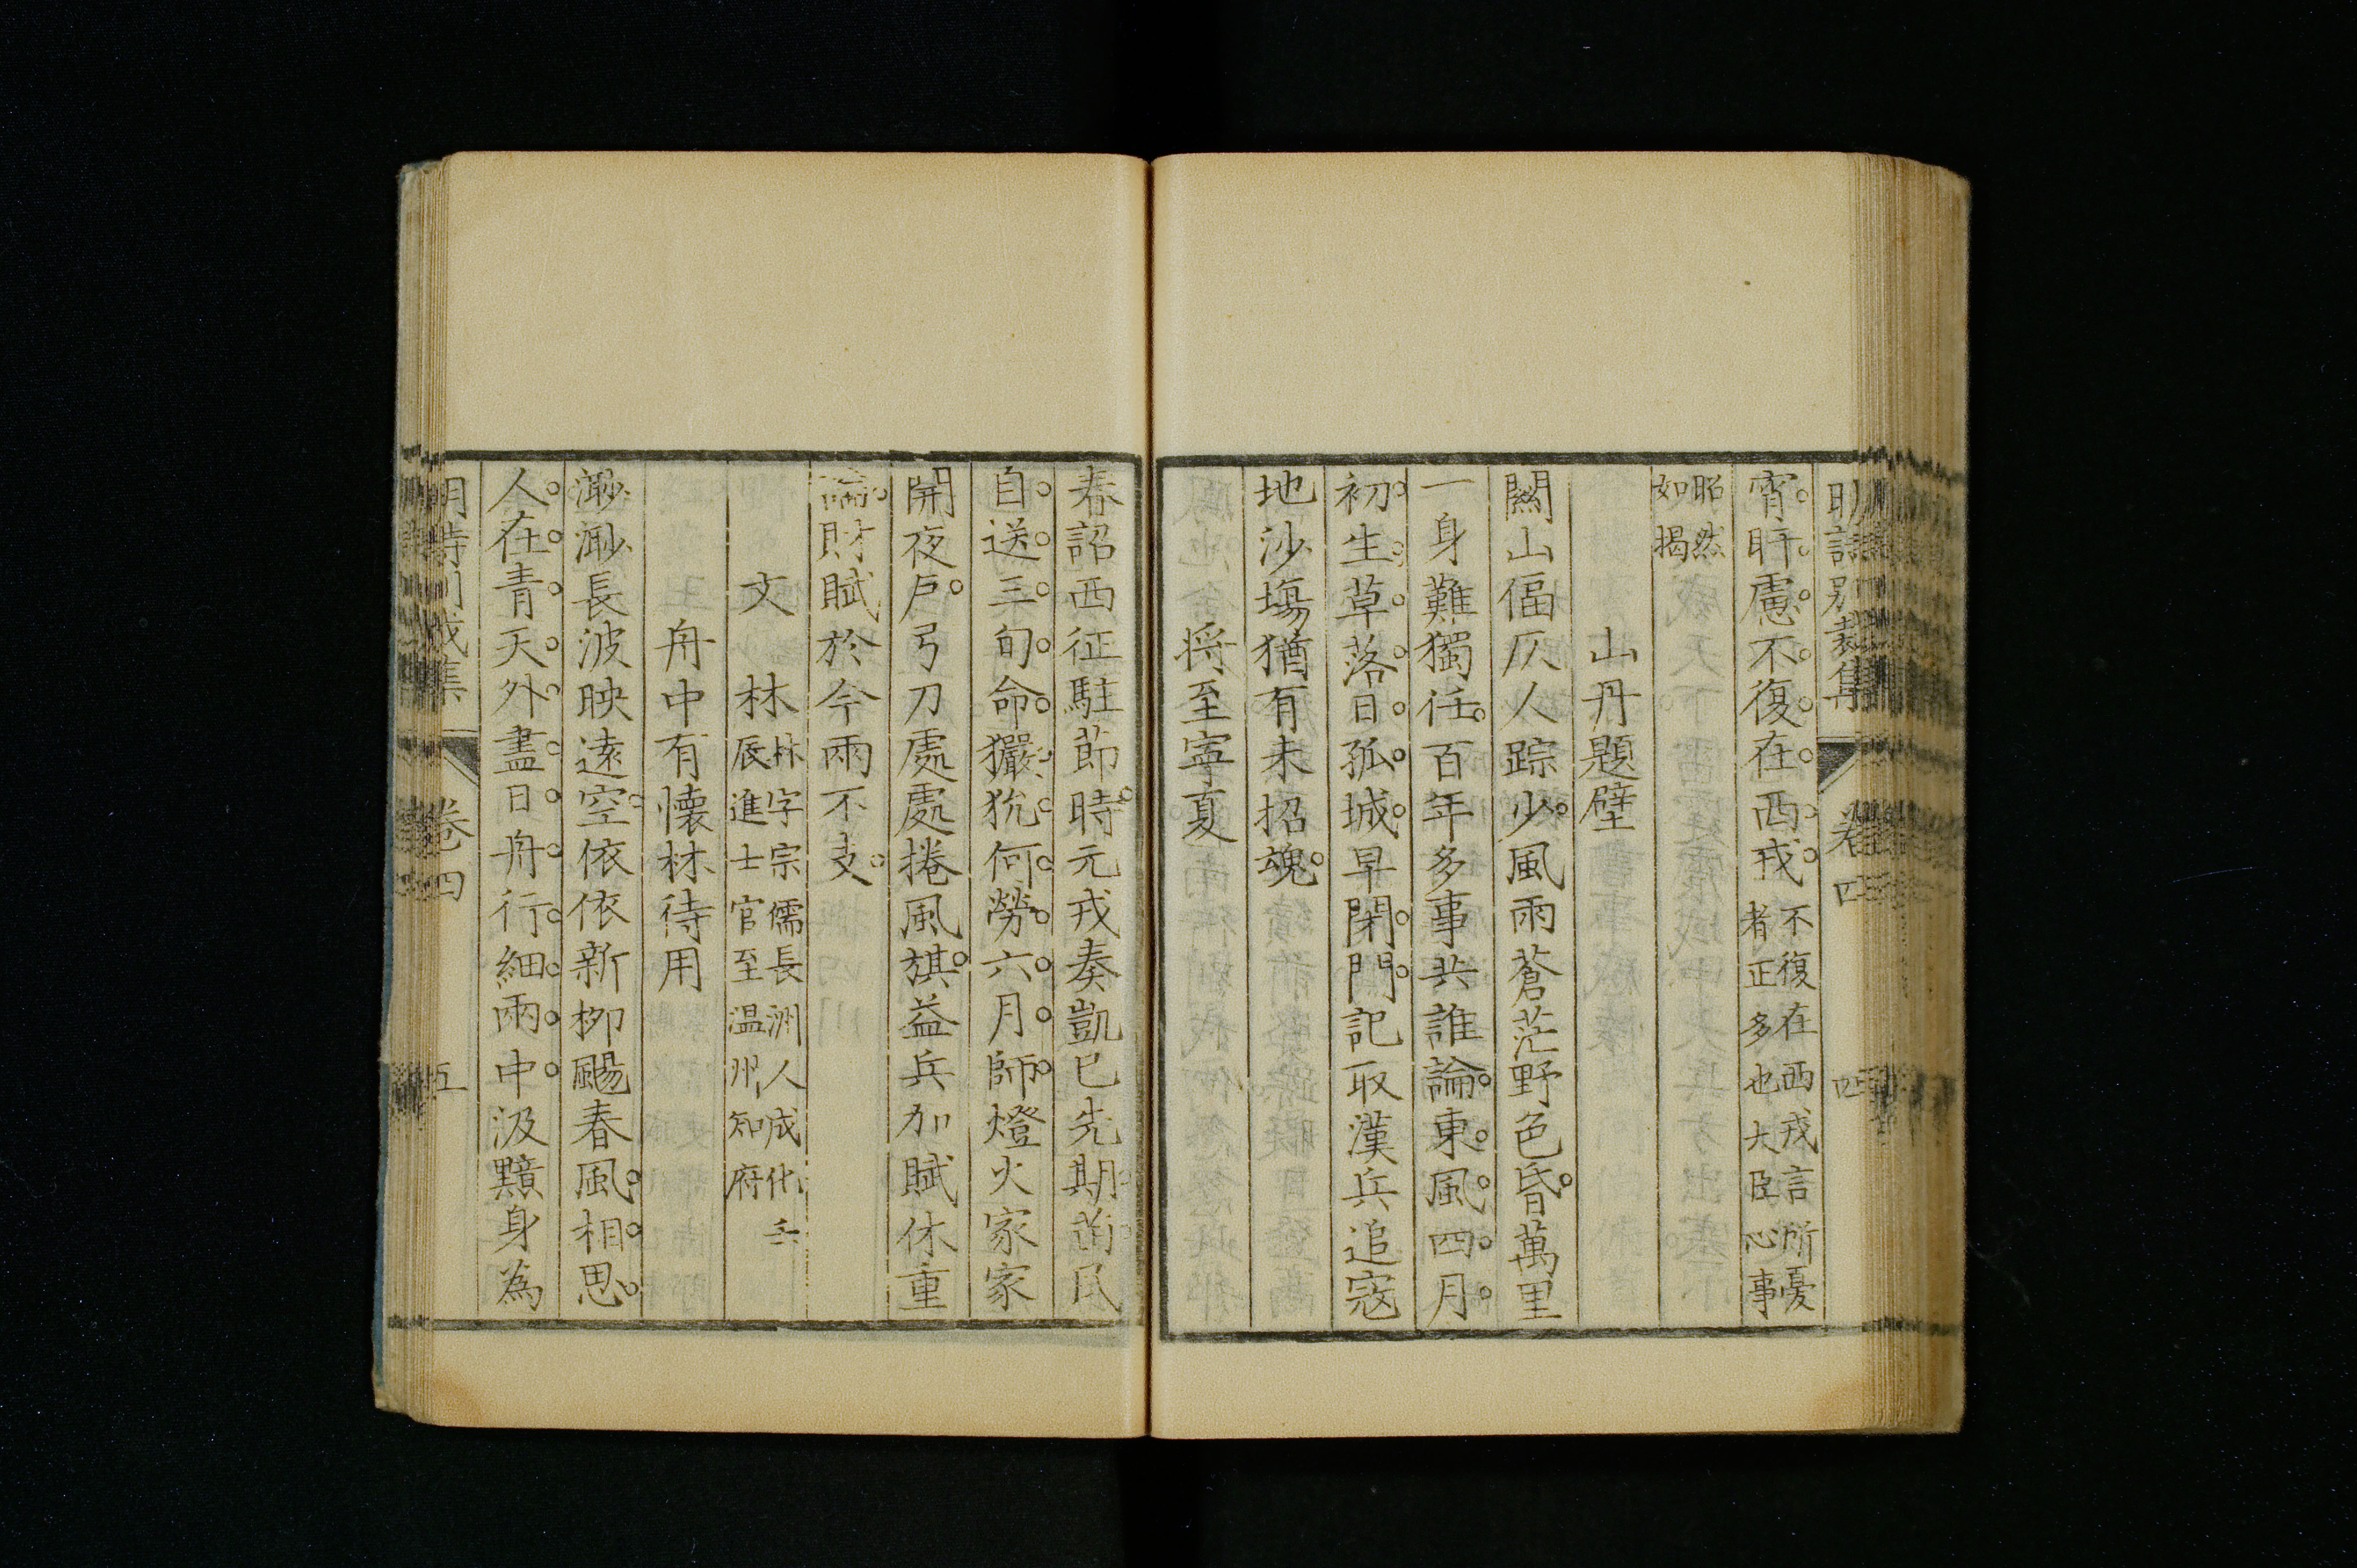 明詩別裁集　卷四　四
宵旰慮不復在西戎不復在西戎言所憂者正多也大臣心事
昭然如揭
山丹題壁
關山偪仄人踪少風雨蒼茫野色昏萬里
一身難獨任百年多事共誰論東風四月
初生草落日孤城早閉門記取漢兵追寇
地沙場猶有未招魂
將至寧夏
春詔西征駐節時元戎奏凱已先期苗民
自送三旬命玁狁何勞六月師燈火家家
開夜戶弓刀處處捲風旗益兵加賦休重
論財賦於今兩不支
文　林林字宗儒長洲人成化壬辰進士官至温州知府
舟中有懷林待用
渺渺長波映遠空依依新柳颺春風相思
人在青天外盡日舟行細雨中汲黯身為
明詩別裁集　卷四　五